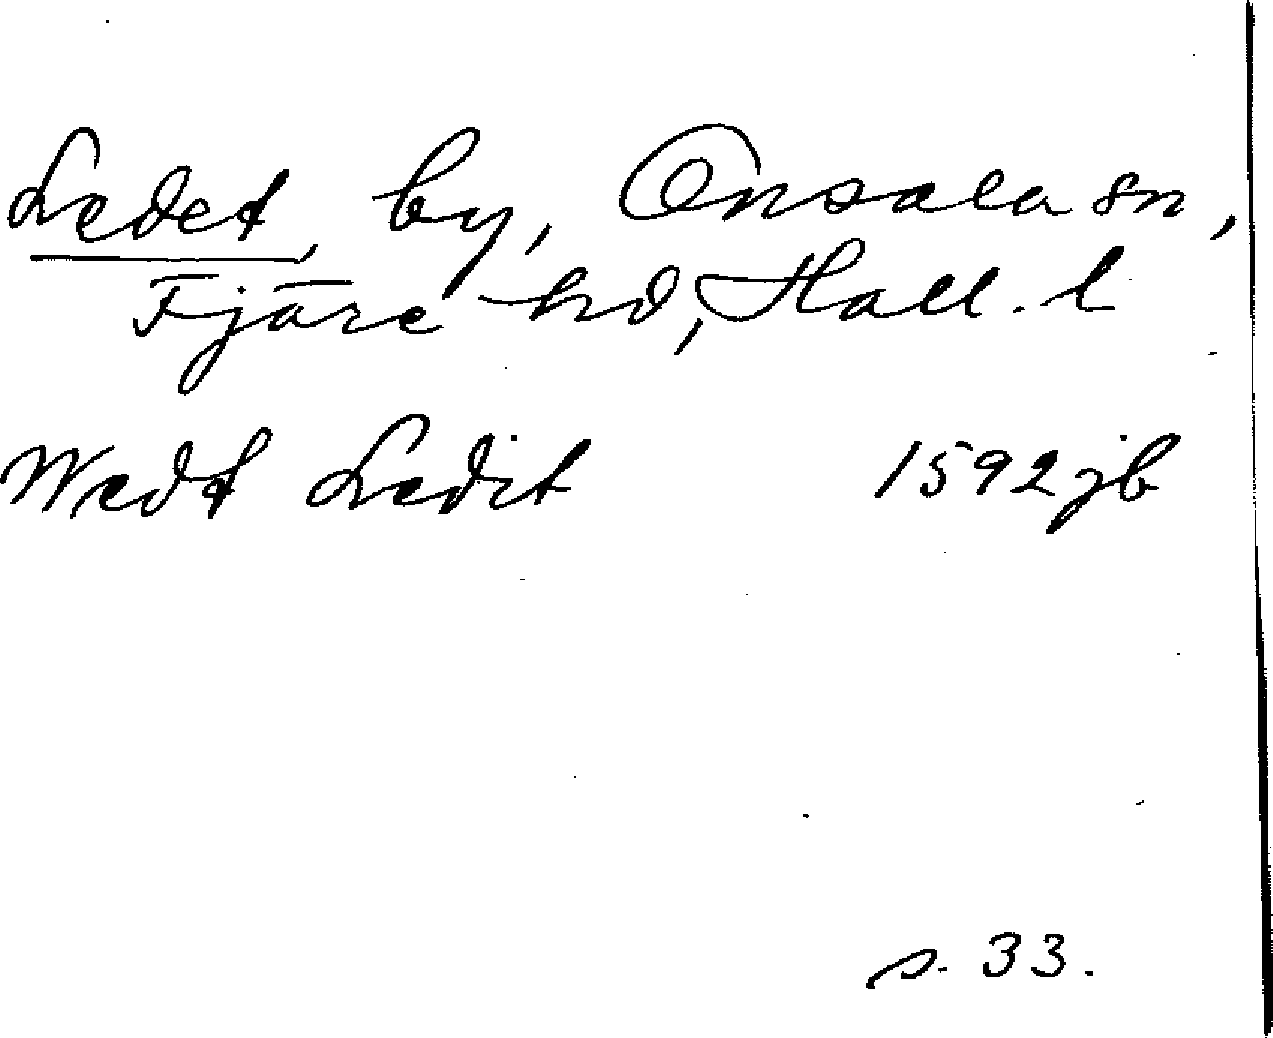 Ledet, by, Onsala sn,
Fjäre hd, Hall. l
Wedt Ledit 1592 jb
s. 33.